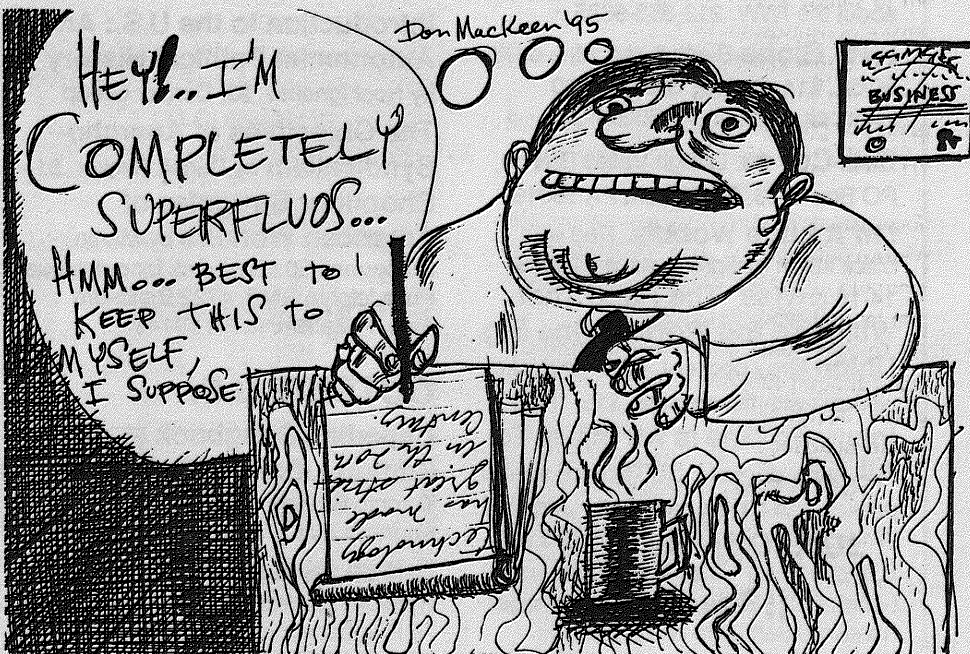 Don MacKeen '95
HEY!.. I'M
COMPLETELY
SUPERFLUOS...
HMM... BEST to
KEEP THIS to
MYSELF,
I SUPPOSE
BUSINESS
Technology
has made
great
in the 20th
Century.